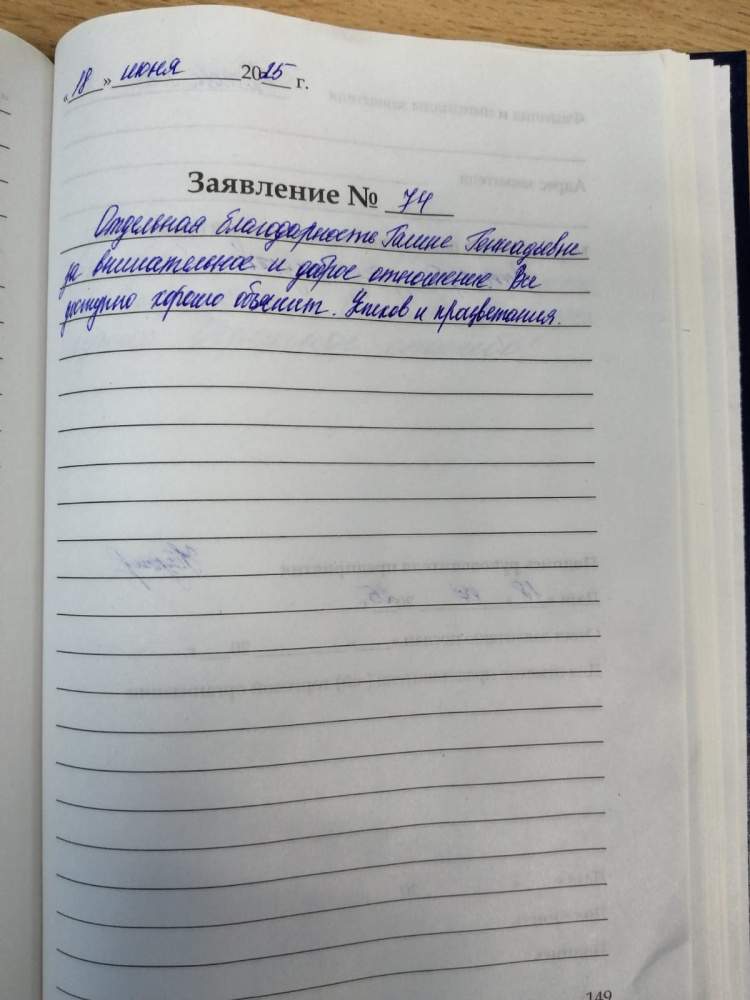 «18» июня 2025 г.
Заявление № 74
Отдельная благодарность Галине Геннадьевне
за внимательное и доброе отношение. Все
доступно хорошо объяснит. Успехов и процветания.
149